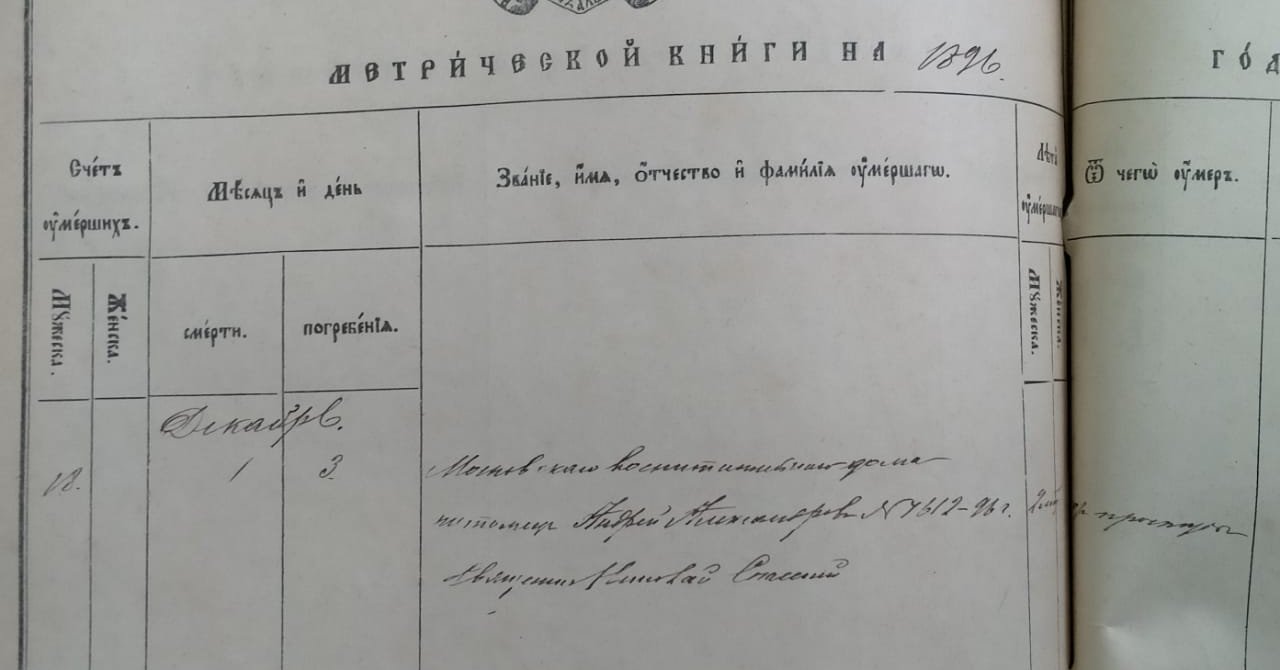 МЕТРИ́ЧЕСКОЙ КНИ́ГИ НА 1896.
ГО́Д
Сче́тъ ᲂу҆ме́ршихъ.
Мѣ́сяцъ и҆ де́нь
Зва́нїе, и҆́мѧ, ѻ҆́тчество и҆ фами́лїѧ ᲂу҆ме́ршагѡ.
Лѣ́та ᲂу҆ме́ршагѡ
Ѿ чегѡ̀ ᲂу҆́меръ.
Мꙋ́жеска.
Же́нска.
сме́рти.
погребе́нїѧ.
Мꙋ́жеска.
Же́нска.
Декабрь.
18.
1
3.
Московскаго воспитательнаго дома
питомецъ Андрей Александровъ № 7612-96 г.
2 мѣс
отъ простуды
Священникъ Николай Спасский